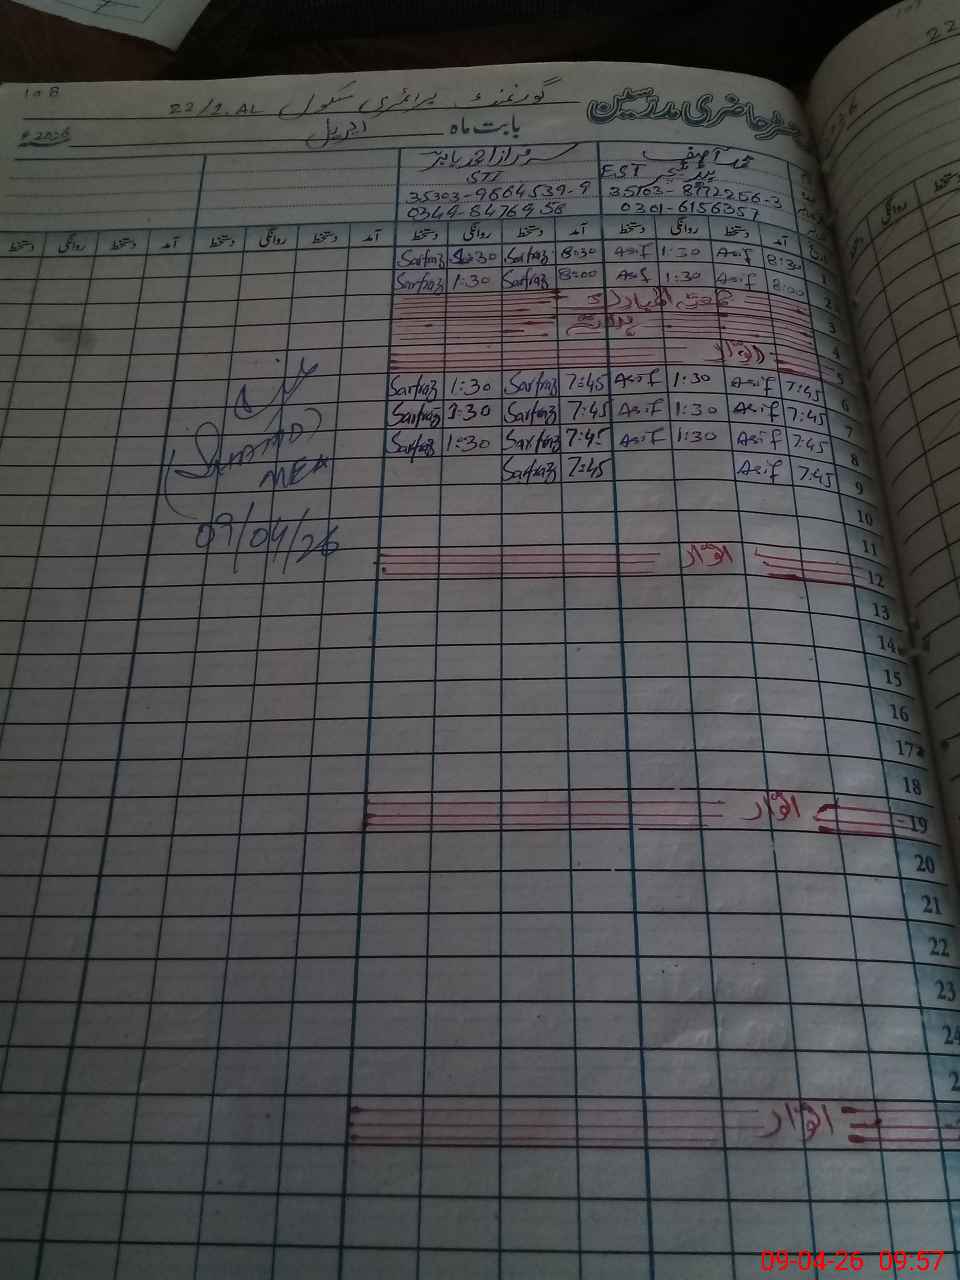 108
رجسٹر حاضری مدرسین گورنمنٹ پرائمری سکول 22/2.AL
بابت ماہ اپریل 2026ء
محمد آصف
سرفراز احمد بابر
EST
STI
35103-8972256-3
35303-9664539-9
0301-6156357
0349-8476956
آمد دستخط روانگی دستخط آمد دستخط روانگی دستخط آمد دستخط روانگی دستخط آمد دستخط روانگی دستخط
1 8:30 Asif 1:30 Asif 8:30 Sarfraz 1:30 Sarfraz
2 8:00 Asif 1:30 Asif 8:00 Sarfraz 1:30 Sarfraz
3
4
5 اتوار
6 7:45 Asif 1:30 Asif 7:45 Sarfraz 1:30 Sarfraz
7 7:45 Asif 1:30 Asif 7:45 Sarfraz 1:30 Sarfraz
8 7:45 Asif 1:30 Asif 7:45 Sarfraz 1:30 Sarfraz
9 7:45 Asif 7:45 Sarfraz
MEA
09/04/26
10
11
12 اتوار
13
14
15
16
17
18
19 اتوار
20
21
22
23
24
2
اتوار
09-04-26 09:57